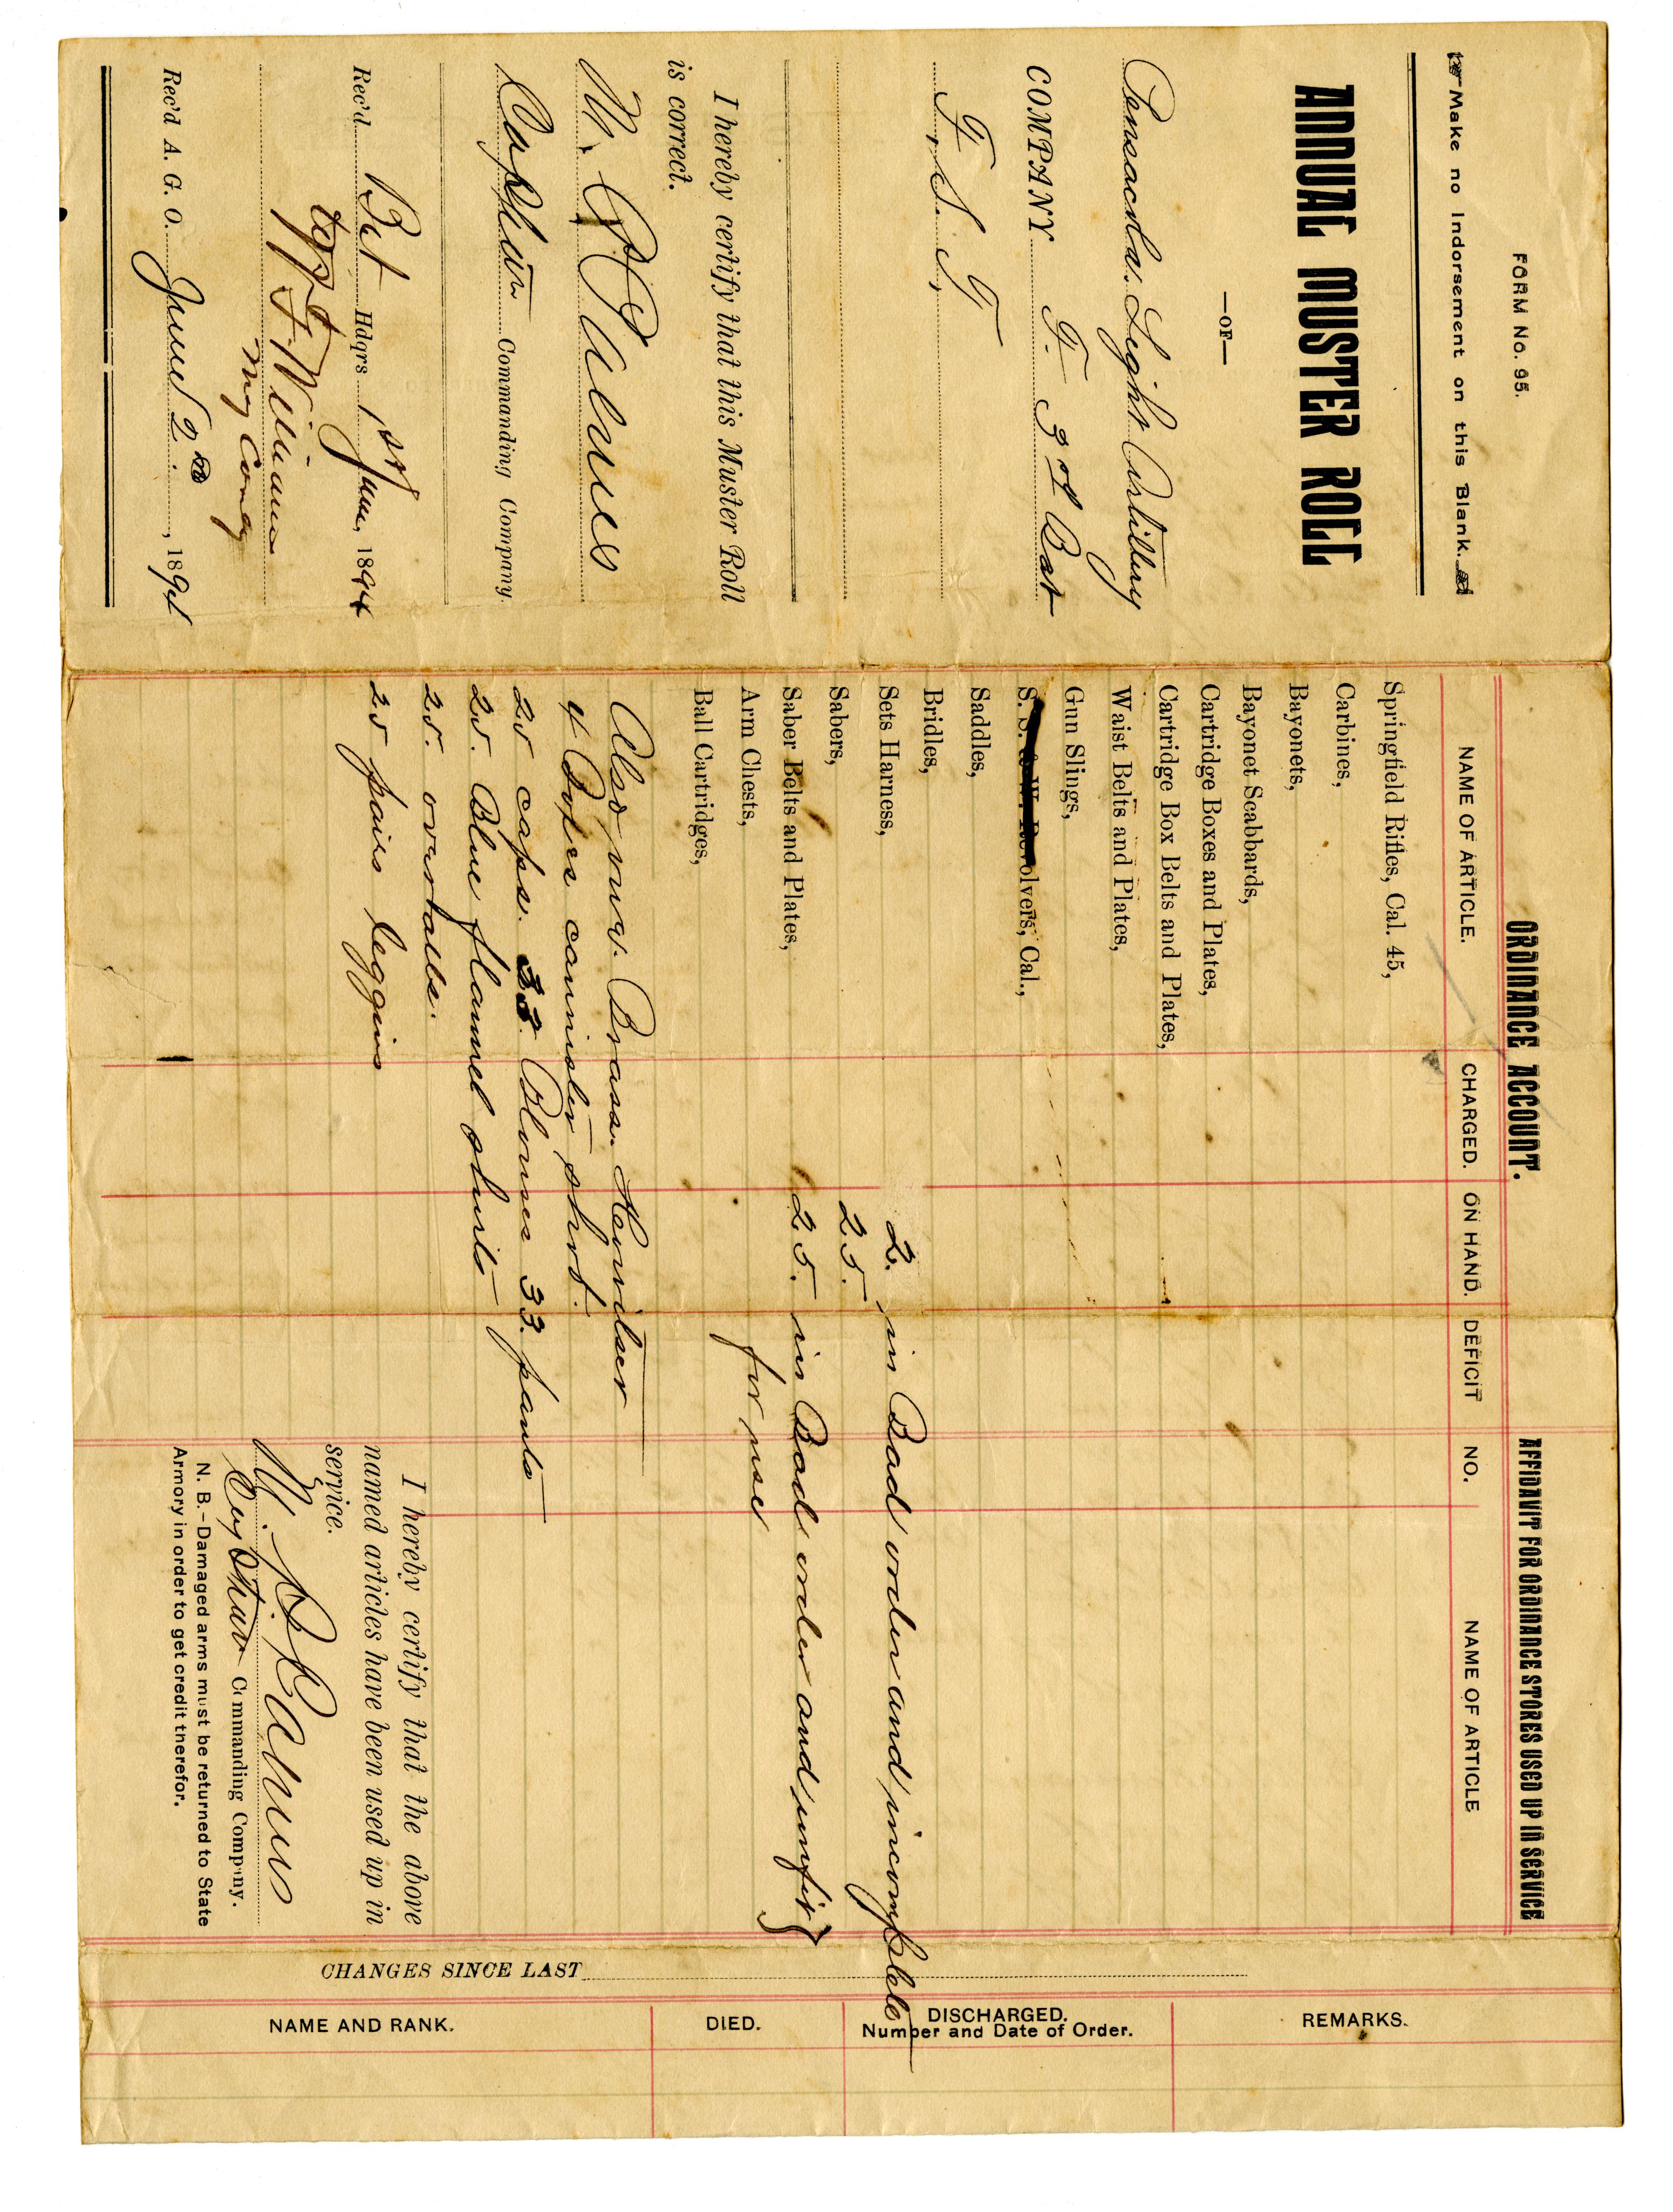 FORM No. 95.
Make no Indorsement on this Blank.
ANNUAL MUSTER ROLL
—OF—
Pensacola Light Artillery
COMPANY F. 3rd Bat
F. S. T.
I hereby certify that this Muster Roll
is correct.
Captain Commanding Company.
Rec'd Bat Hdqrs 1st June, 1894
F Williams
Rec'd A. G. O. June 2nd, 1894
ORDINANCE ACCOUNT.
NAME OF ARTICLE. CHARGED. ON HAND. DEFICIT
Springfield Rifles, Cal. 45,
Carbines,
Bayonets,
Bayonet Scabbards,
Cartridge Boxes and Plates,
Cartridge Box Belts and Plates,
Waist Belts and Plates,
Gun Slings,
S. S. & W. Revolvers, Cal.,
Saddles,
Bridles,
Sets Harness, 2. in Bad order and incomplete
Sabers, 25.
Saber Belts and Plates, 25. in Bad order and unfit
Arm Chests, for use
Ball Cartridges,
Also two. Brass. Howitser
4 Boxes cannister shot.
25 caps. 33. Blouses 33. pants
25. Blue flannel shirts
25. overalls.
25 pairs leggins
AFFIDAVIT FOR ORDINANCE STORES USED UP IN SERVICE
NO. NAME OF ARTICLE
I hereby certify that the above
named articles have been used up in
service.
Captain Commanding Company.
N. B.—Damaged arms must be returned to State
Armory in order to get credit therefor.
CHANGES SINCE LAST
NAME AND RANK. DIED. DISCHARGED. REMARKS.
Number and Date of Order.